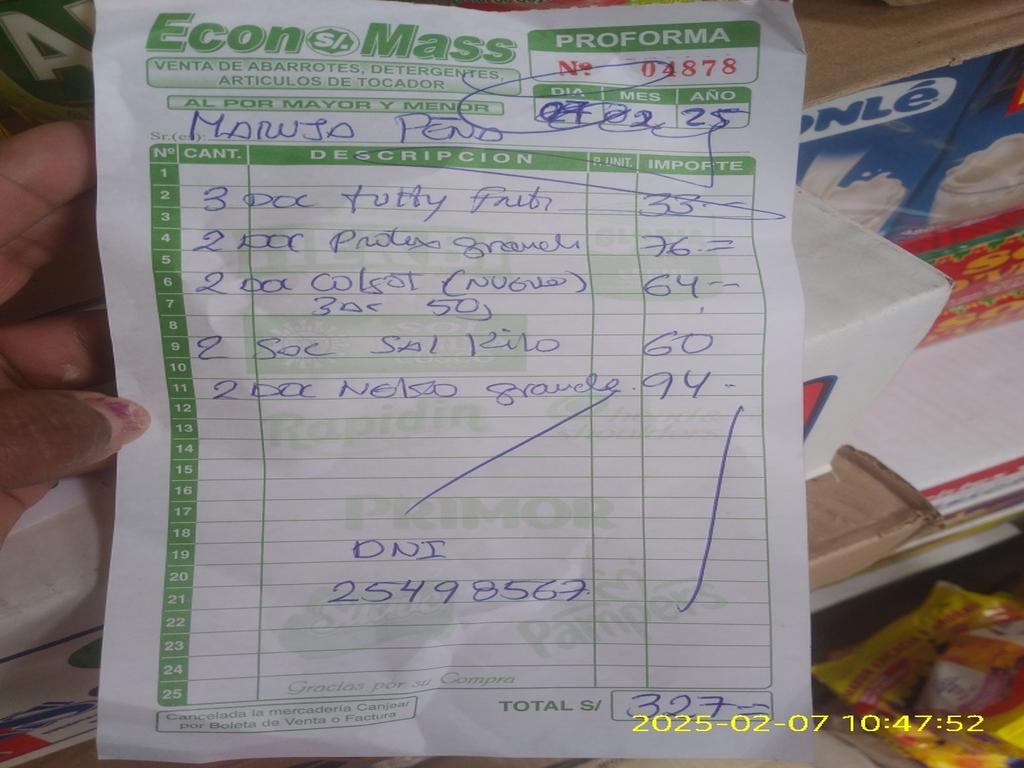 Econo S/A Mass
VENTA DE ABARROTES, DETERGENTES,
ARTICULOS DE TOCADOR
AL POR MAYOR Y MENOR
PROFORMA
Nº 04878
DIA MES AÑO
07 02 25
Sr.(es): MARUJA PEÑA
Nº CANT. DESCRIPCION P. UNIT. IMPORTE
1
2 3 DOC tutty fruti 33-
3
4 2 DOC Protex grande 76=
5
6 2 DOC Colgat (NUEVO) 64-
7 50g
8
9 2 SAC SAL Kilo 60
10
11 2 DOC grande 94-
12
13 Rapidin
14
15
16
17 PRIMOR
18
19 DNI
20
21 25498567
22 Pampers
23
24
25 Gracias por su Compra
Cancelada la mercadería Canjear
por Boleta de Venta o Factura
TOTAL S/ 327-
2025-02-07 10:47:52
ONLÉ